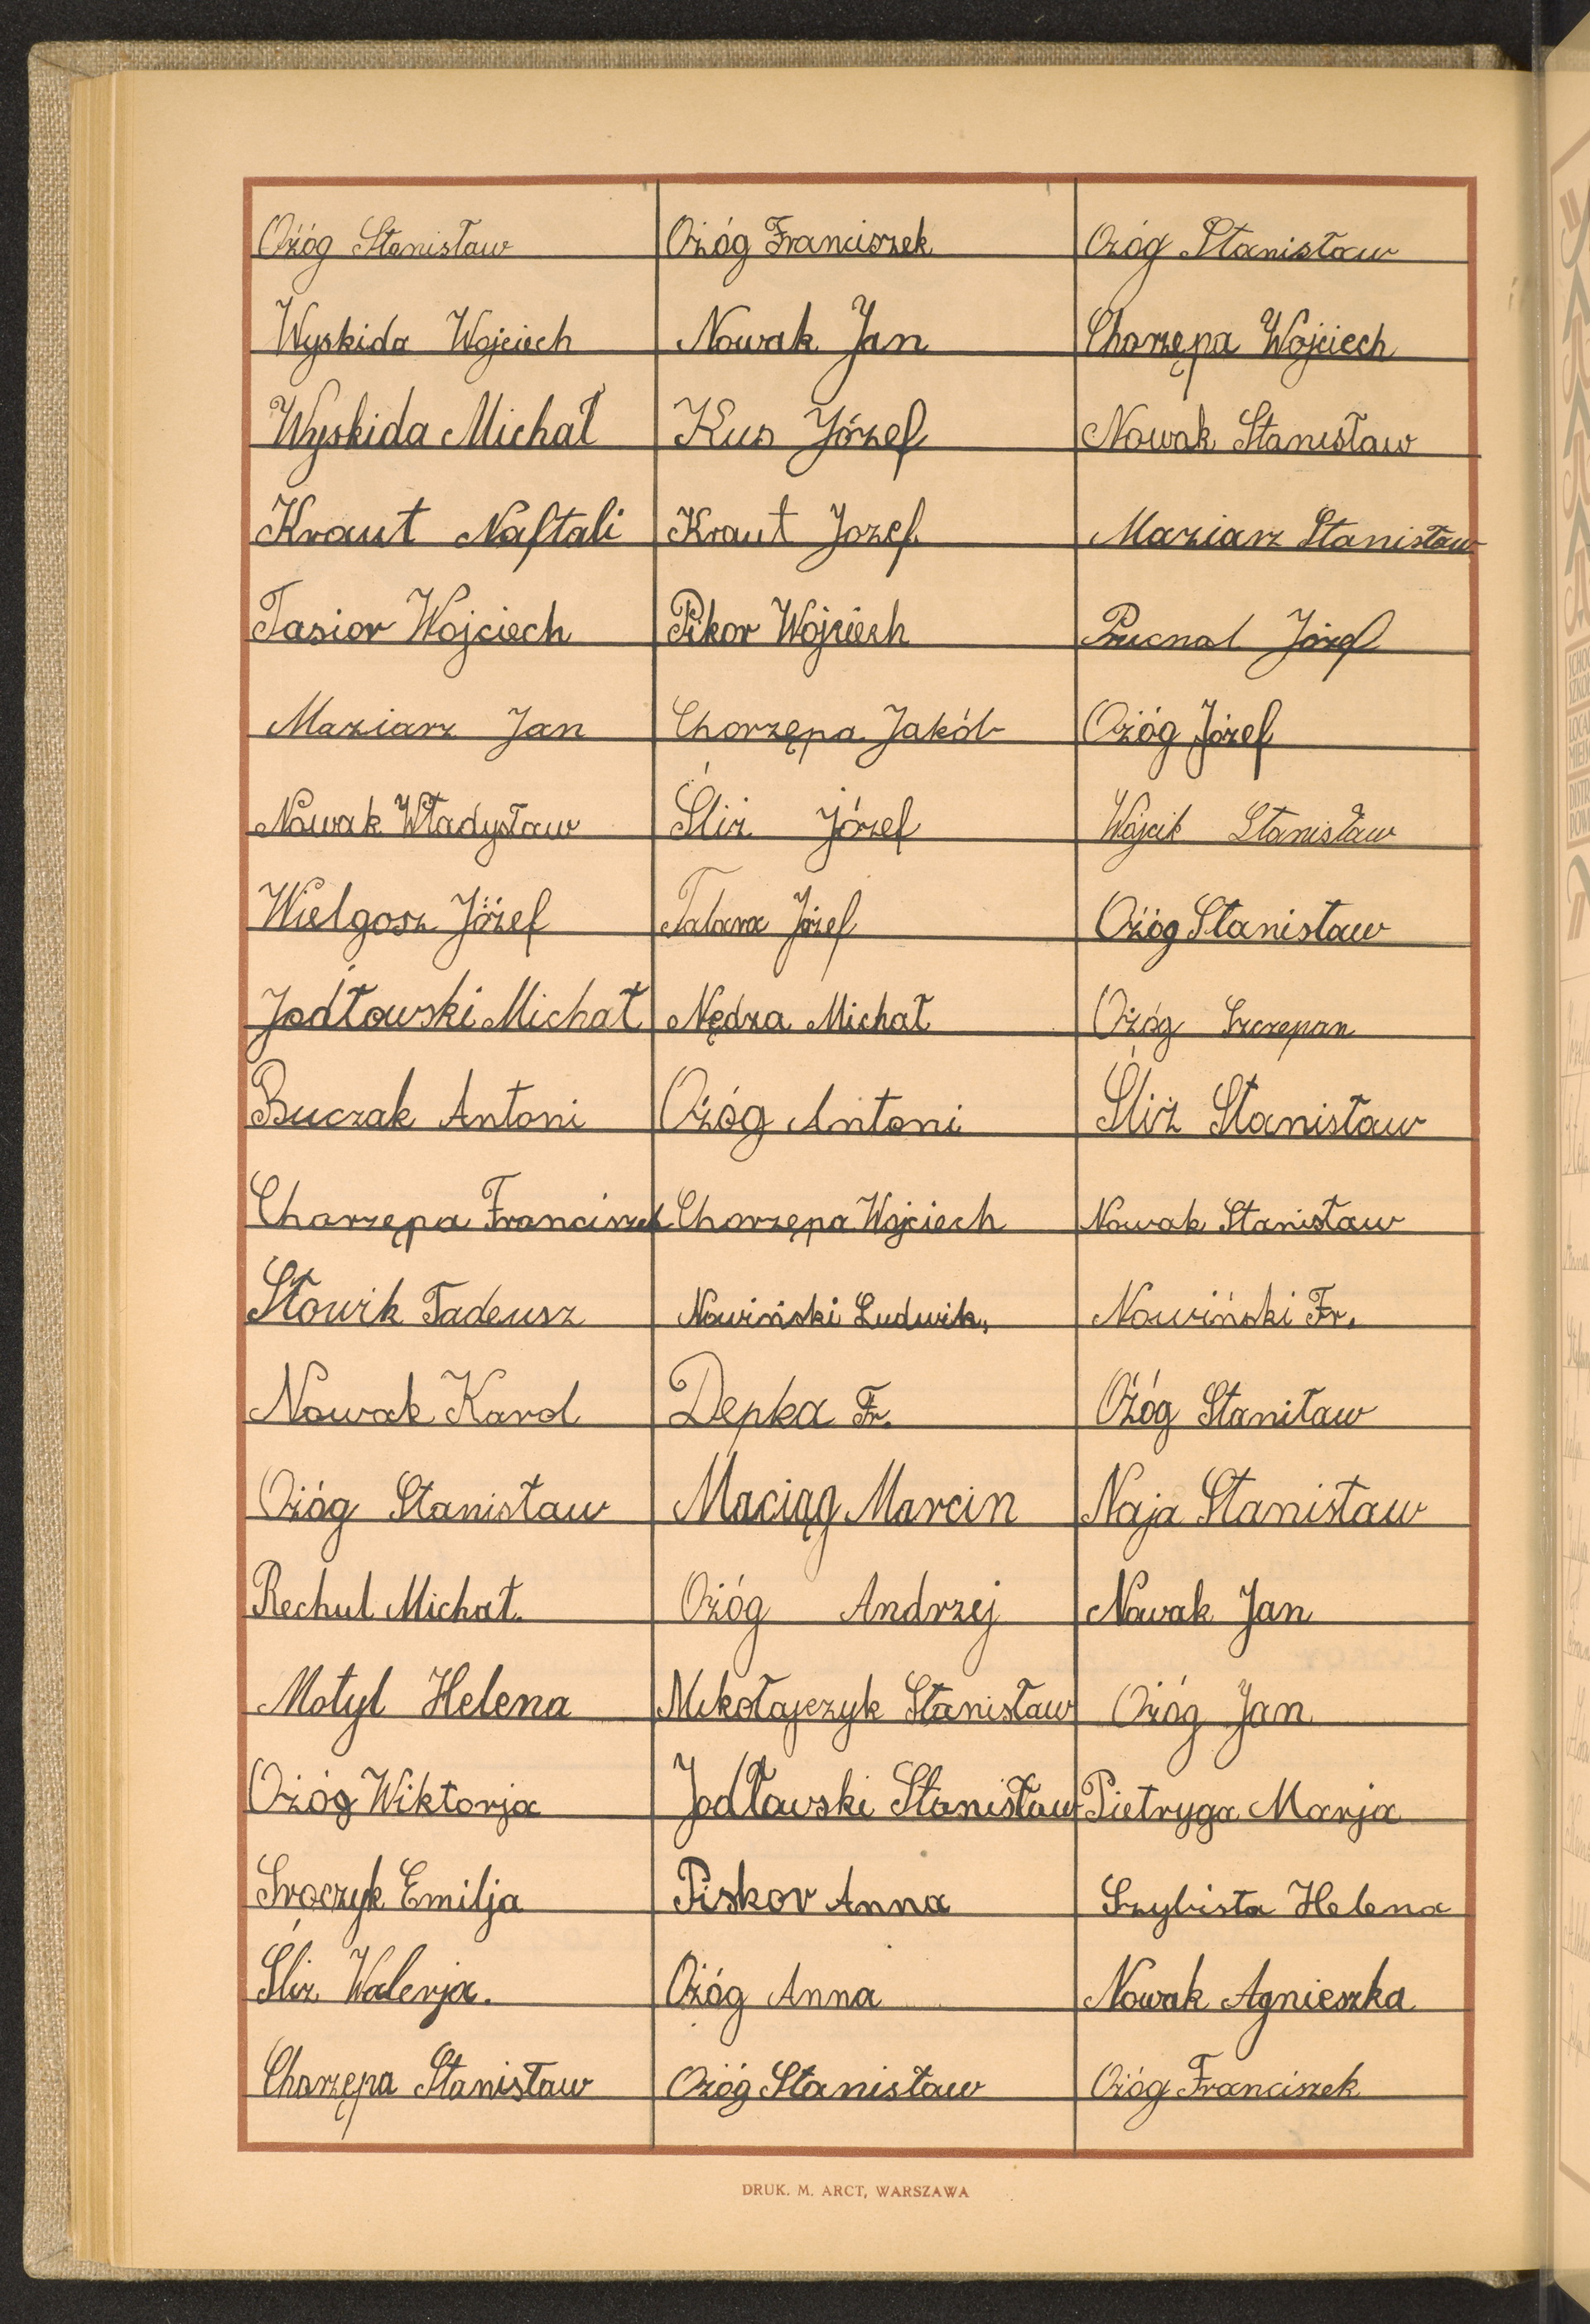 Ożóg Stanisław
Ożóg Franciszek
Ożóg Stanisław
Wyskida Wojciech
Nowak Jan
Chorzępa Wojciech
Wyskida Michał
Kus Józef
Nowak Stanisław
Kraut Naftali
Kraut Jozef.
Maziarz Stanisław
Tasior Wojciech
Pikor Wojciech
Prucnal Józef
Maziarz Jan
Chorzępa Jakób
Ożóg Józef
Nowak Władysław
Śliż Józef
Wójcik Stanisław
Wielgosz Józef
Talara Józef
Ożóg Stanisław
Jodłowski Michał
Nędza Michał
Ożóg Szczepan
Buczak Antoni
Ożóg Antoni
Śliż Stanisław
Chorzępa Franciszek
Chorzępa Wojciech
Nowak Stanisław
Słowik Tadeusz
Nowiński Ludwik,
Nowiński Fr.
Nowak Karol
Depka Fr.
Ożóg Staniław
Ożóg Stanisław
Maciąg Marcin
Naja Stanisław
Rechul Michał.
Ożóg Andrzej
Nowak Jan
Motyl Helena
Mikołajczyk Stanisław
Ożóg Jan
Ożóg Wiktorja
Jodłowski Stanisław
Pietryga Marja
Sroczyk Emilja
Piskor Anna
Szybista Helena
Śliz Walerja.
Ożóg Anna
Nowak Agnieszka
Chorzępa Stanisław
Ożóg Stanisław
Ożóg Franciszek
DRUK. M. ARCT, WARSZAWA